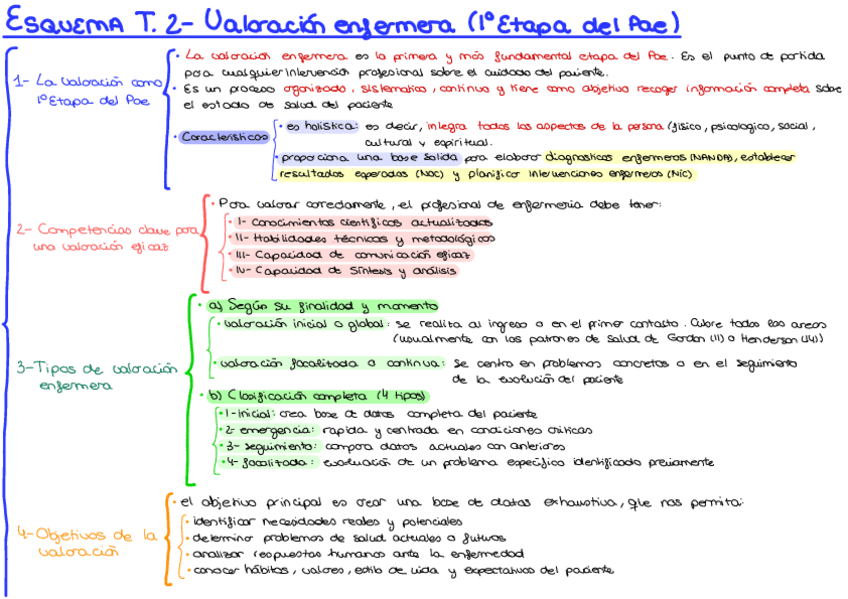 ESQUEMA T. 2- Valoración enfermera (1º Etapa del Pae)
1- La valoración como
1º Etapa del Pae
· La valoración enfermera es la primera y más fundamental etapa del Pae. Es el punto de partida
para cualquier intervención profesional sobre el cuidado del paciente.
· Es un proceso organizado, sistemático, continuo y tiene como objetivo recoger información completa sobre
el estado de salud del paciente
· Características
· es holística: es decir, integra todos los aspectos de la persona (físico, psicológico, social,
cultural y espiritual.
· proporciona una base sólida para elaborar diagnósticos enfermeros (NANDA), establecer
resultados esperados (NOC) y planificar intervenciones enfermeras (NIC)
2- Competencias clave para
una valoración eficaz
· Para valorar correctamente, el profesional de enfermería debe tener:
· I- Conocimientos científicos actualizados
· II- Habilidades técnicas y metodológicas
· III- Capacidad de comunicación eficaz
· IV- Capacidad de síntesis y análisis
3-Tipos de valoración
enfermera
· a) Según su finalidad y momento
· valoración inicial o global: se realiza al ingreso o en el primer contacto. Cubre todas las areas
(usualmente con los patrones de salud de Gordon (11) o Henderson (14))
· valoración focalizada o continua: se centra en problemas concretos o en el seguimiento
de la evolución del paciente
· b) Clasificación completa (4 tipos)
· 1-inicial: crea base de datos completa del paciente
· 2- emergencia: rapida y centrada en condiciones críticas
· 3- seguimiento: compara datos actuales con anteriores
· 4- focalizada: evaluación de un problema específico identificado previamente
4-Objetivos de la
valoración
· el objetivo principal es crear una base de datos exhaustiva, que nos permita:
· identificar necesidades reales y potenciales
· determina problemas de salud actuales o futuros
· analizar respuestas humanas ante la enfermedad
· conocer hábitos, valores, estilo de vida y expectativas del paciente